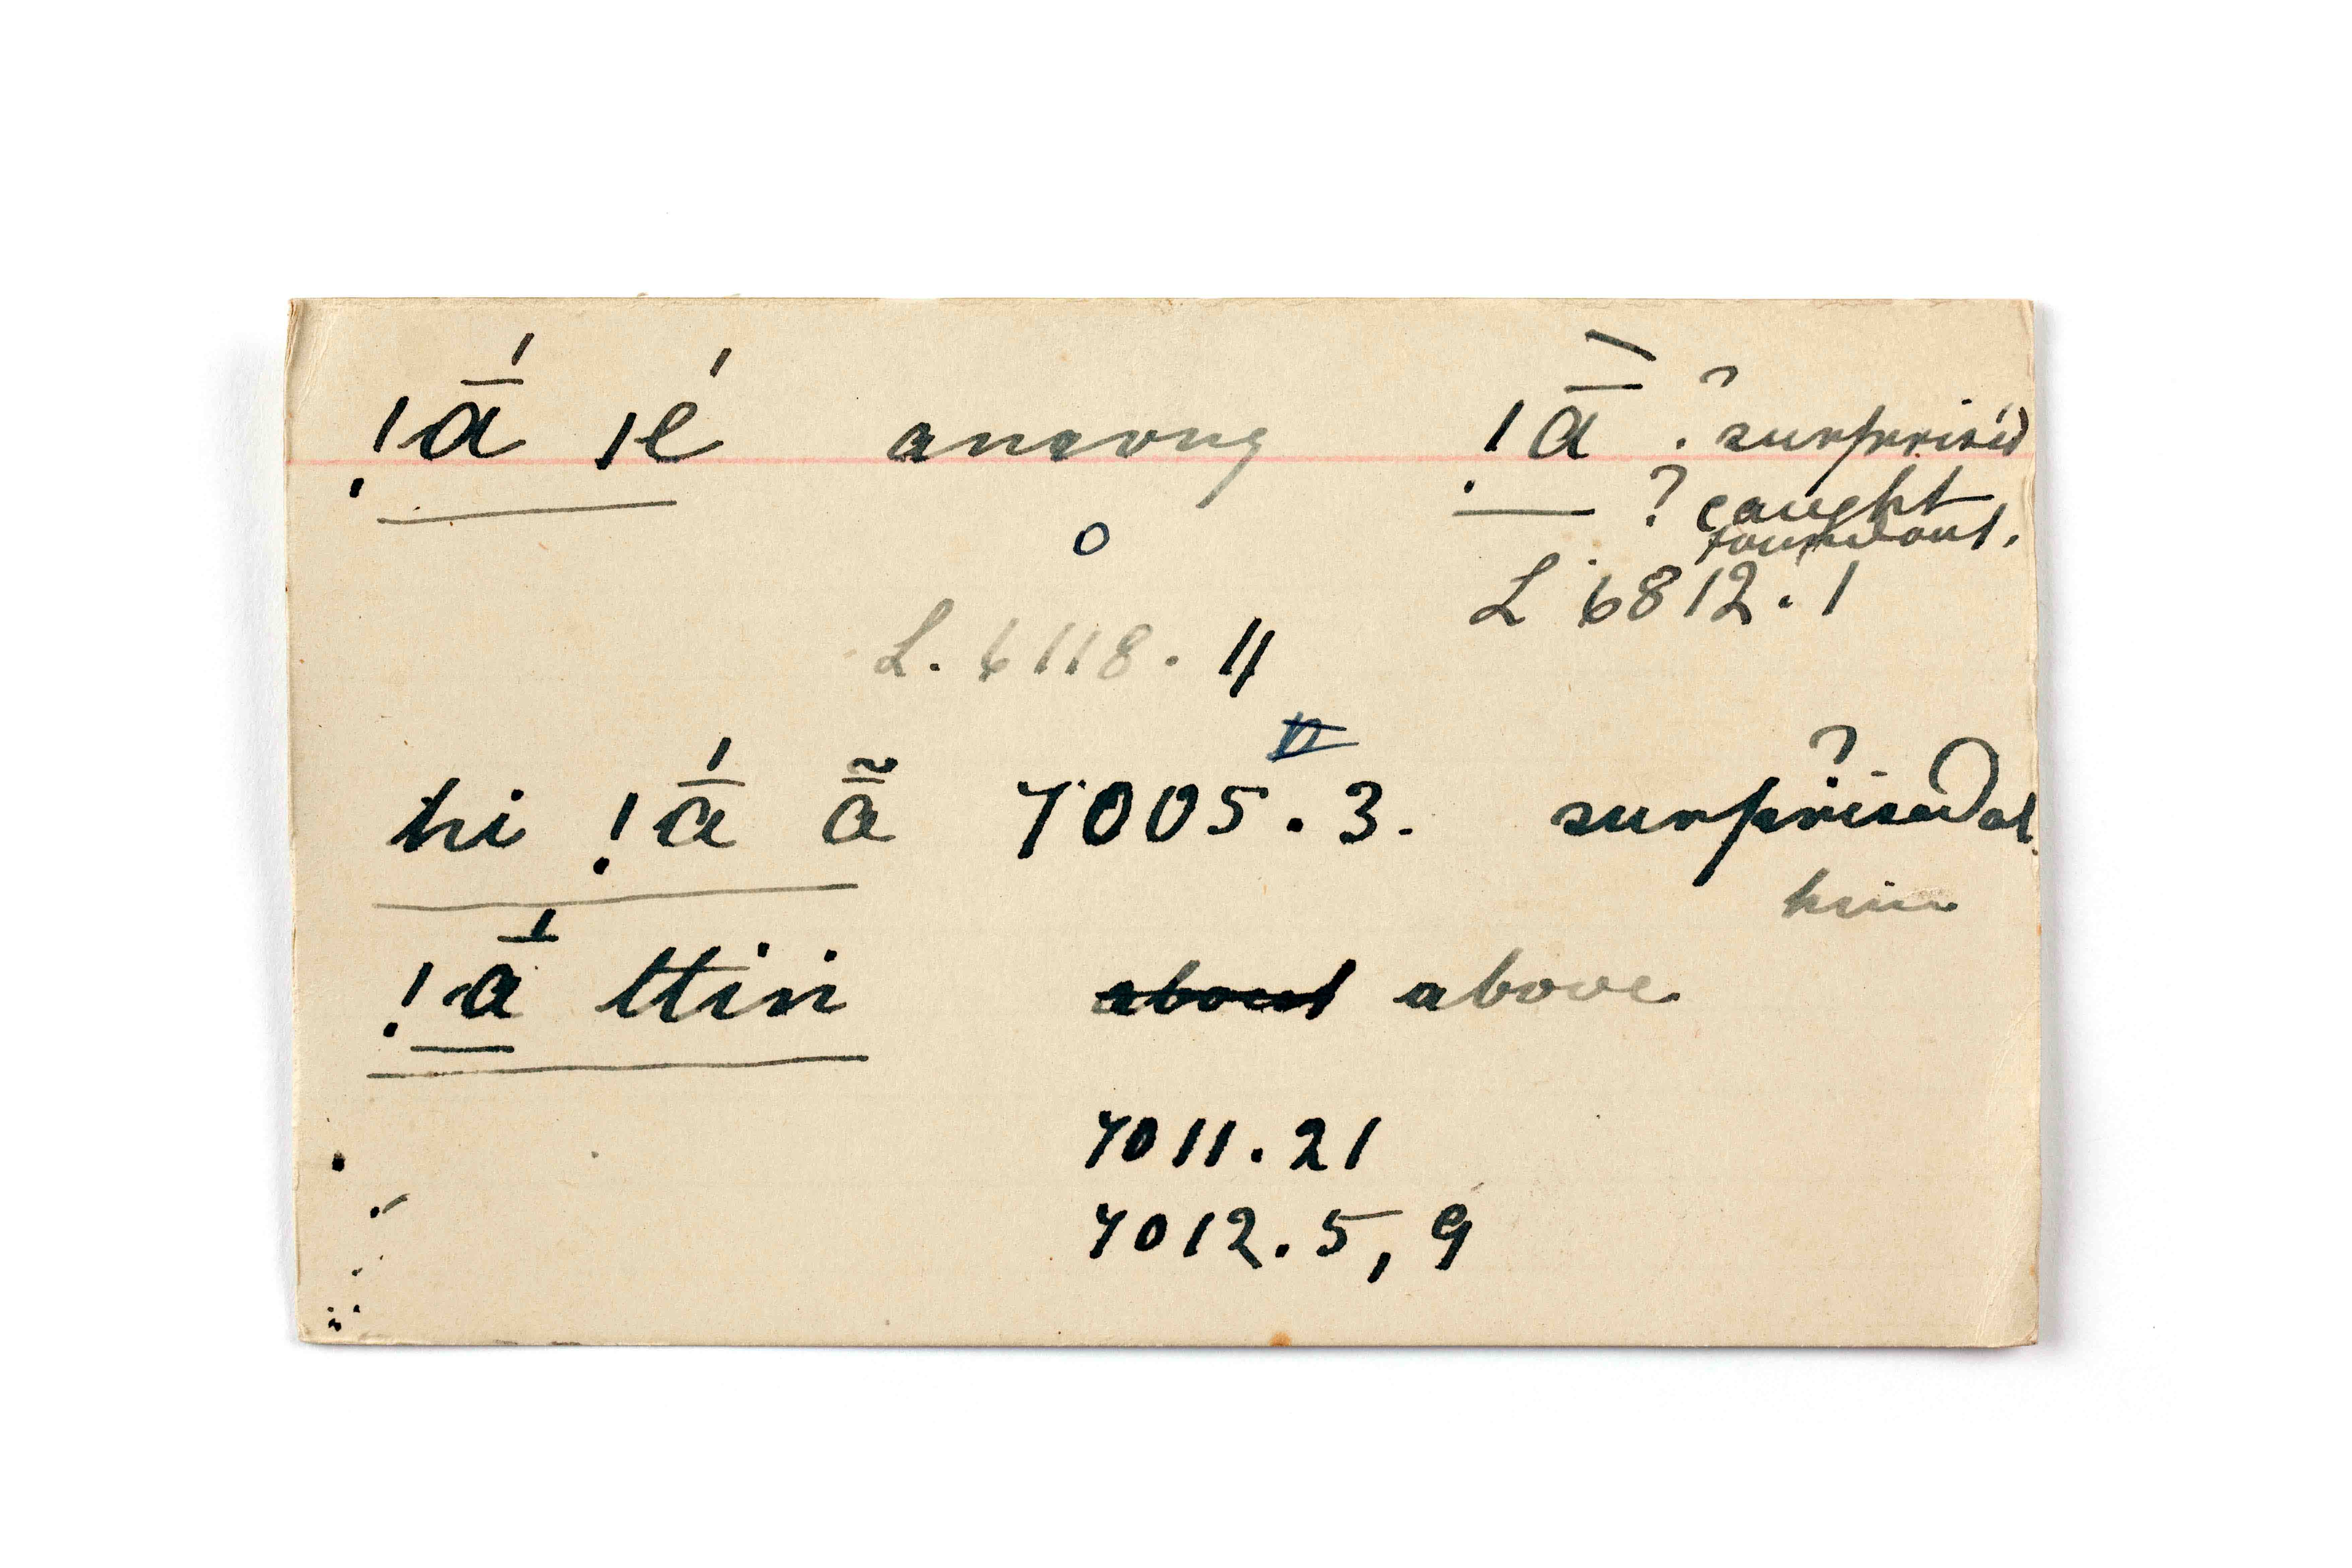 !ā́ |é among !ā̀ ? surprised
? caught
found out.
o
L 6812.1
L. 6118. 11
hi !ā́ ā̃ 7005.3. surprised at
him
!ā́ ttin about above
7011.21
7012.5, 9